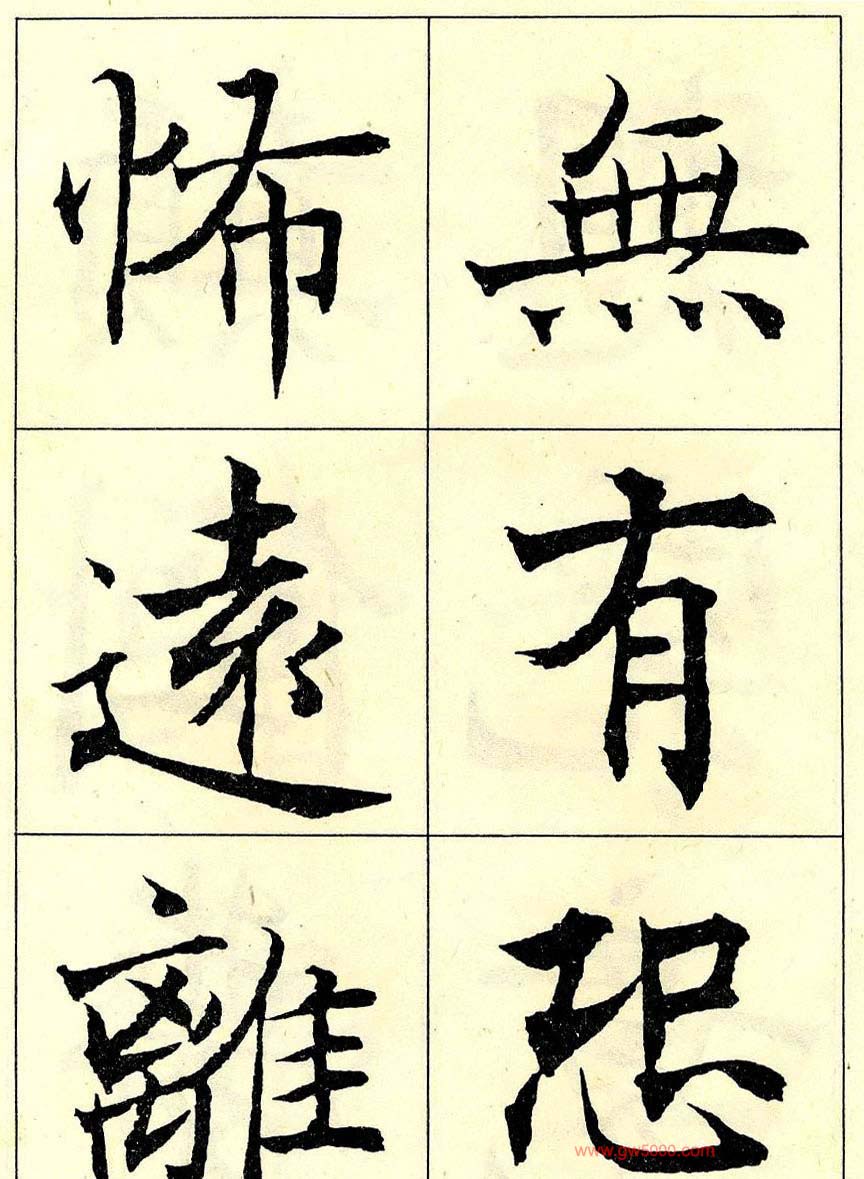 無有恐
怖遠離
www.gw5000.com